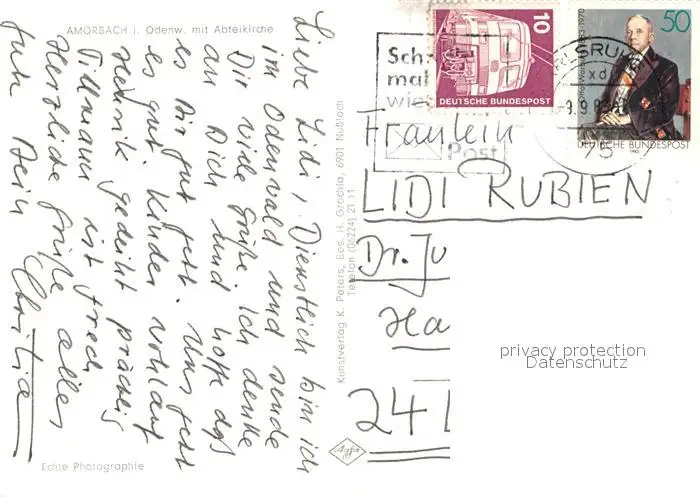 AMORBACH i. Odenw. mit Abteikirche
Liebe Lidi, Dienstlich bin ich
im Odenwald und sende
Dir viele Grüße. Ich denke
an Dich und hoffe daß
es Dir gut geht. Uns geht
es gut. Kinder wohlauf
Hendrik gedeiht prächtig
Tillmann ist frech
Herzliche Grüße alles
Gute Dein
Echte Photographie
Kunstverlag K. Peters, Bes. H. Grochla, 6901 Nußloch
Telefon (06224) 21 11
Agfa
10
DEUTSCHE BUNDESPOST
50
DEUTSCHE BUNDESPOST
Sch
mal
wie
Post
SRU
9.9.83
75
Fräulein
LIDI RUBIEN
Dr. Ju
Ha
241
privacy protection
Datenschutz